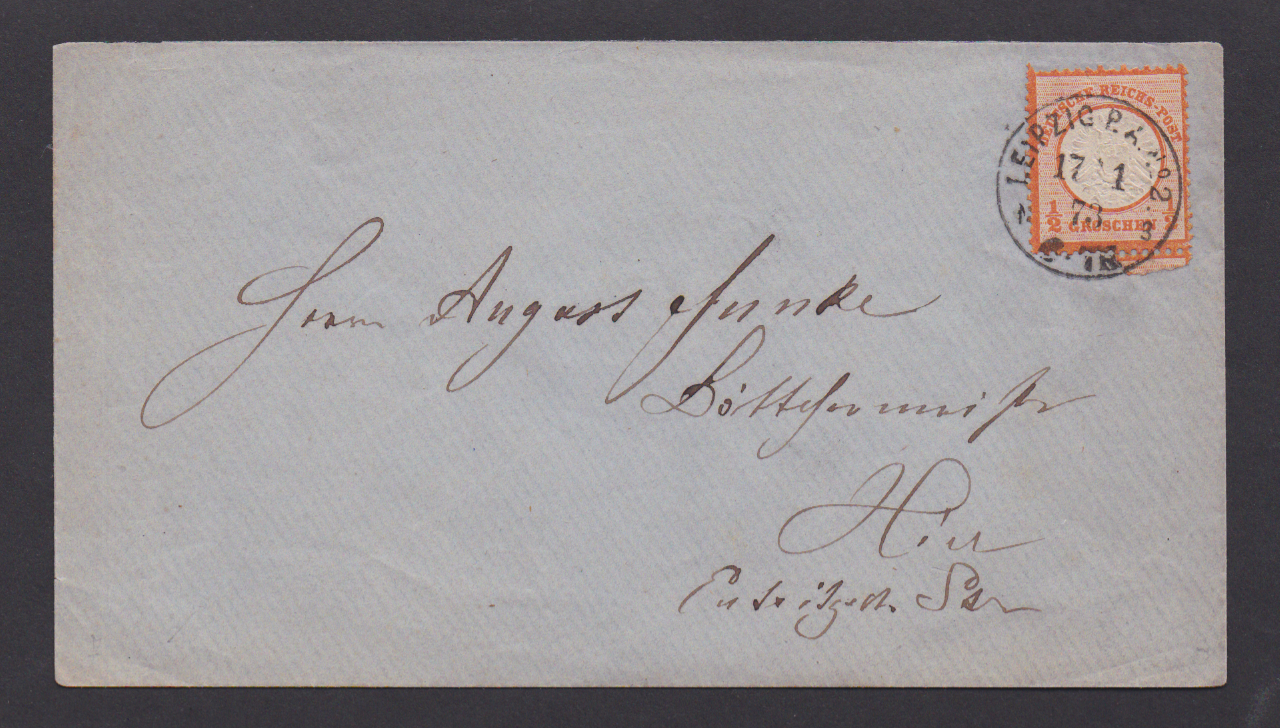 DEUTSCHE REICHS-POST
½ GROSCHEN ½
LEIPZIG P.A. No 2.
17 1
73
Herrn August Funke
Böttchermeister
Hier
Eutritzsch. Str